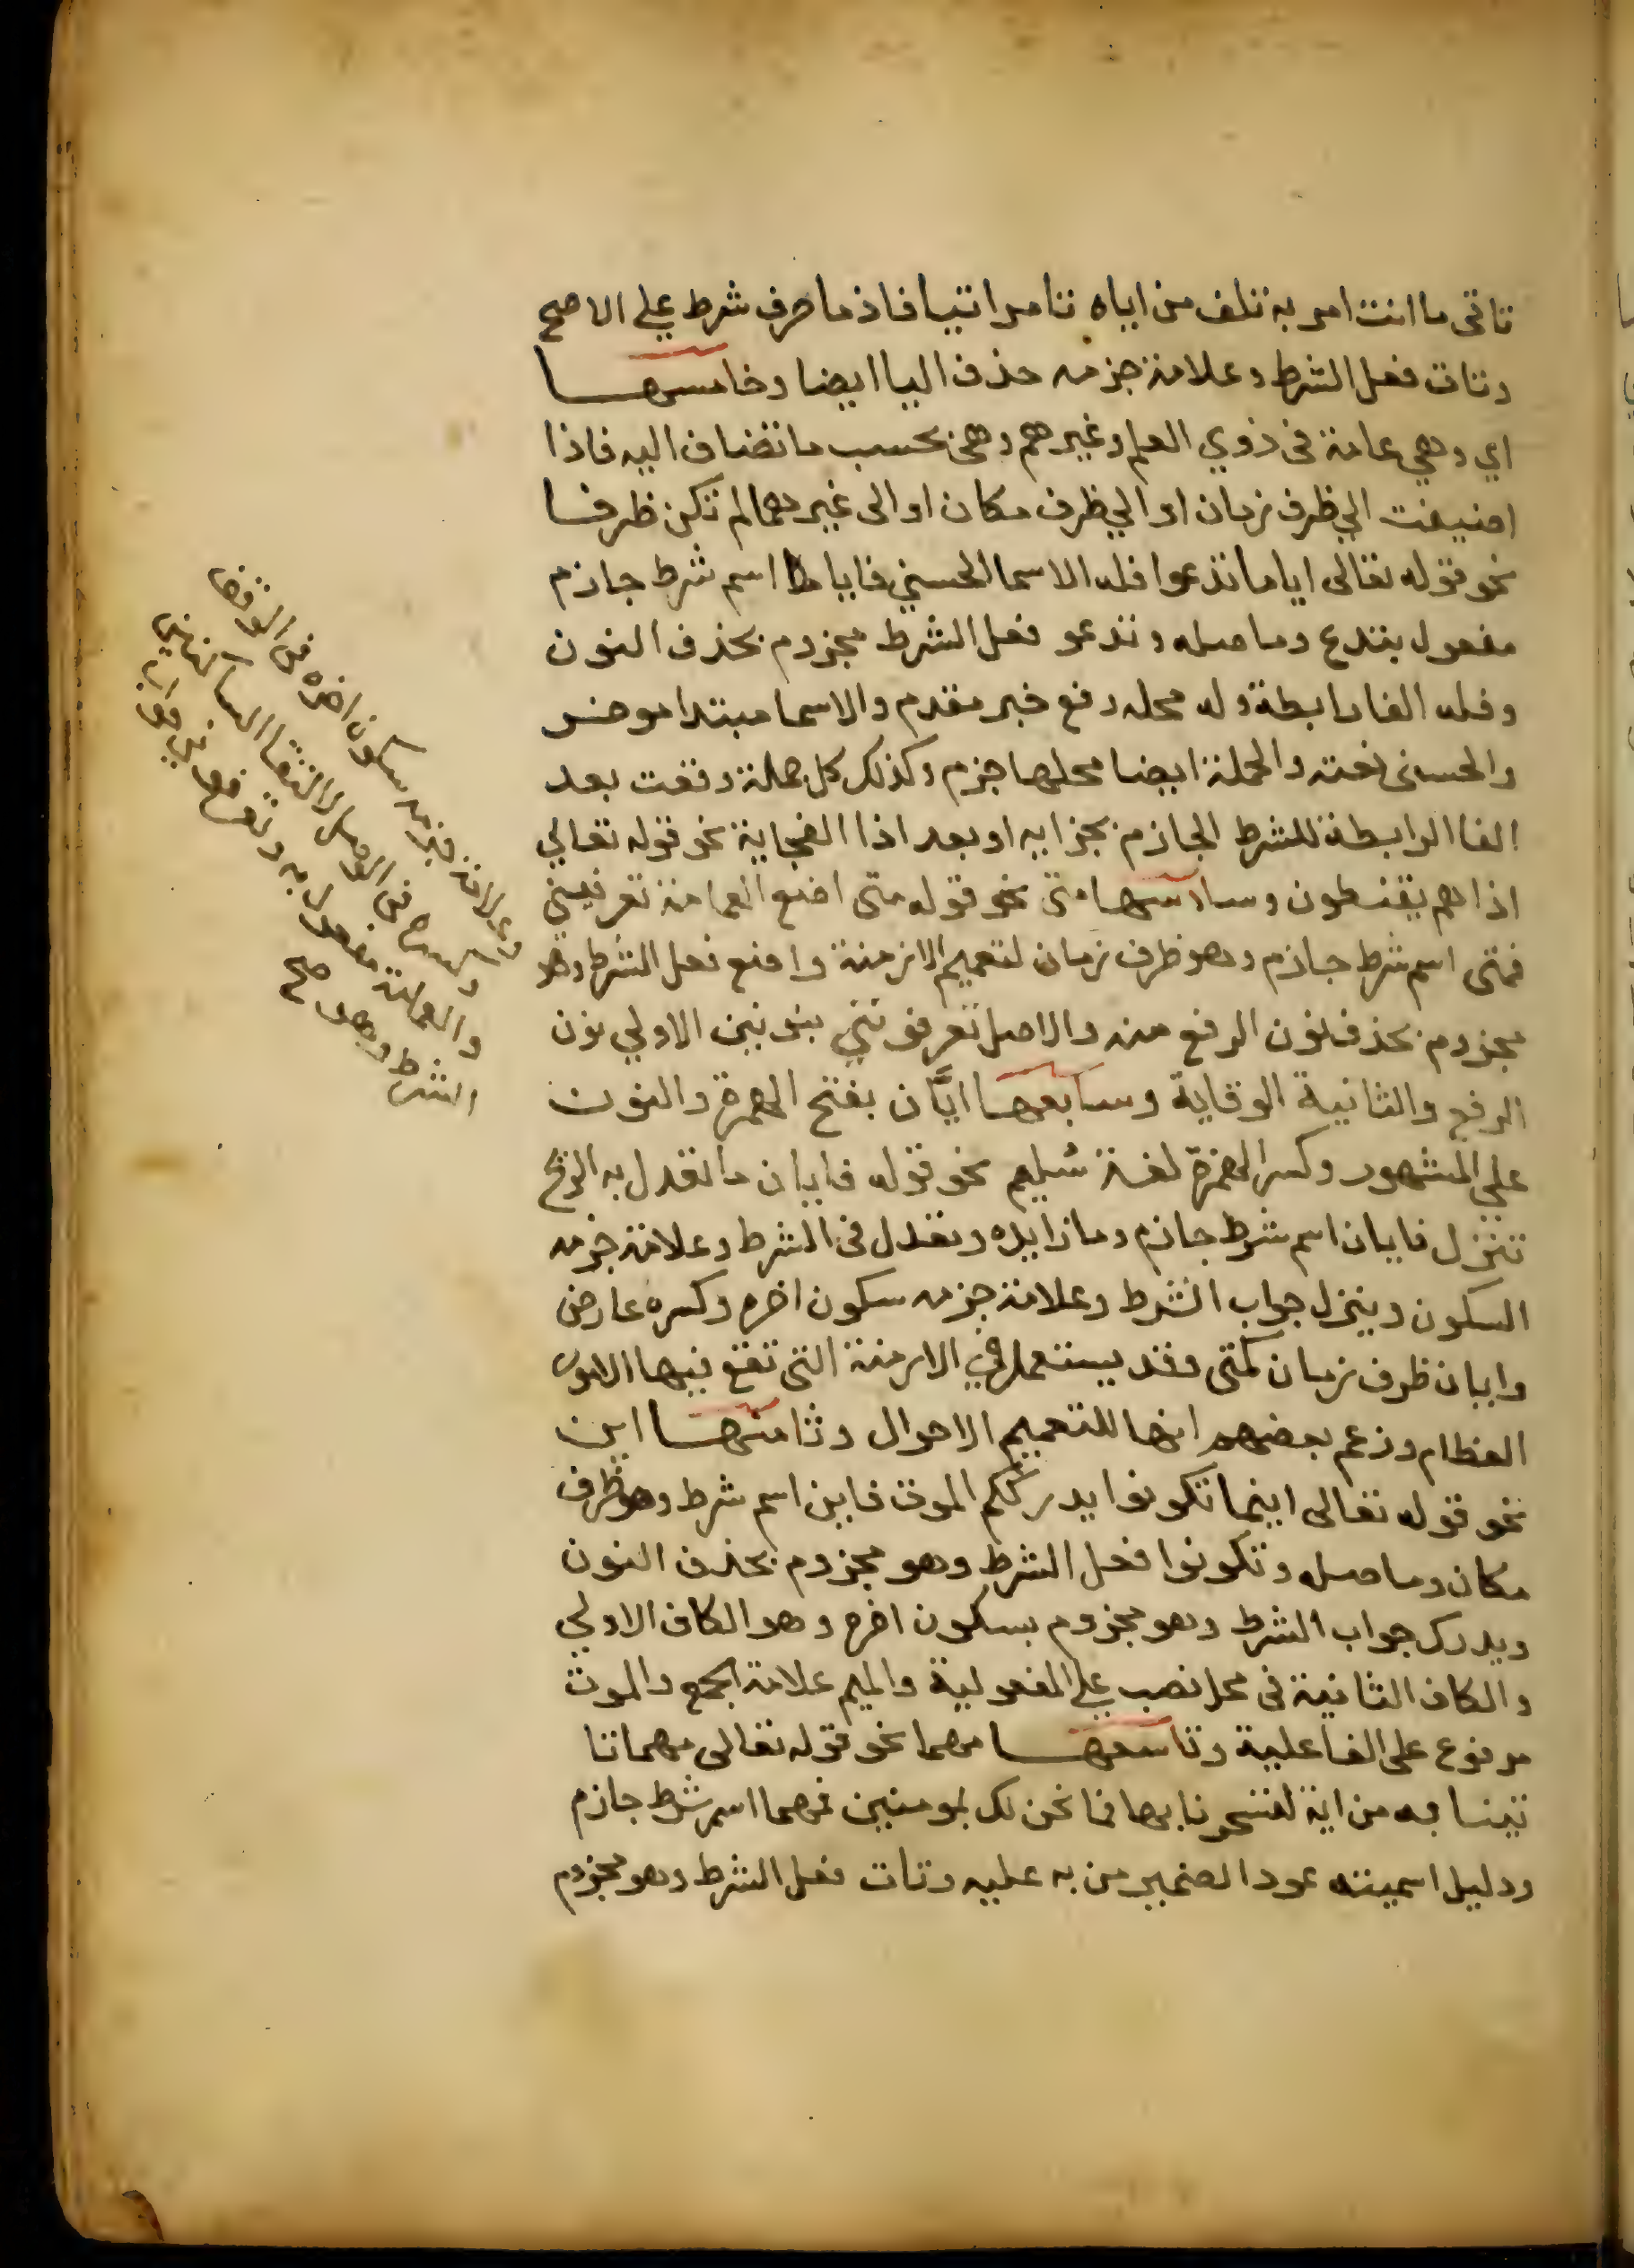 تاتى ما انت امر به تلف من اياه تامر اتيا فاذ ما حرف شرط على الاصح
وتات فعل الشرط وعلامة جزمه حذف اليا ايضا وخامسها
اي وهي عامة فى ذوي العلم وغيرهم وهى بحسب ما تضاف اليه فاذا
اضيفت الي ظرف زمان او الي ظرف مكان او الى غيرهما لم تكن ظرفا
نحو قوله تعالى اياما تدعوا فله الاسما الحسني فايا اسم شرط جازم
مفعول بتدع وما صله وتدعو فعل الشرط مجزوم بحذف النون
وفله الفا رابطة وله محله رفع خبر مقدم والاسما مبتدا موخر
والحسنى نعته والجملة ايضا محلها جزم وكذلك كل جملة وقعت بعد
الفا الرابطة للشرط الجازم بجزايه او بعد اذا الفجاية نحو قوله تعالي
اذا هم يقنطون وسادسها متى نحو قوله متى اضع العمامة تعرفيني
فمتى اسم شرط جازم وهو ظرف زمان لتعميم الازمنة واضع فعل الشرط وهو
مجزوم بحذف نون الرفع منه والاصل تعرفونني بنونين الاولي نون
الرفع والثانية الوقاية وسابعها ايَّان بفتح الهمزة والنون
على المشهور وكسر الهمزة لغة سُليم نحو قوله فايان ما تعدل به الريح
تنزل فايان اسم شرط جازم وما زايده وتعدل فى الشرط وعلامة جزمه
السكون وينزل جواب الشرط وعلامة جزمه سكون اخره وكسره عارض
وايان ظرف زمان كمتى وقد يستعمل في الازمنة التى تقع فيها الامور
العظام وزعم بعضهم انها للتعميم الاحوال وثامنها اين
نحو قوله تعالى اينما تكونوا يدرككم الموت فاين اسم شرط وهو ظرف
مكان وما صله وتكونوا فعل الشرط وهو مجزوم بحذف النون
ويدرك جواب الشرط وهو مجزوم بسكون اخره وهو الكاف الاولي
والكاف الثانية فى محل نصب على المفعولية والميم علامة الجمع والموت
مرفوع على الفاعلية وتاسعها مهما نحو قوله تعالى مهما تا
تينا به من اية لتسحرنا بها فما نحن لك بمومنين فمهما اسم شرط جازم
ودليل اسميته عود الضمير من به عليه وتات فعل الشرط وهو مجزوم
وعلامة جزمه سكون اخره فى الوقف
وكسره فى الوصل لالتقا الساكنين
والعمامة مفعول به وتعرفونى جواب
الشرط وهو صح